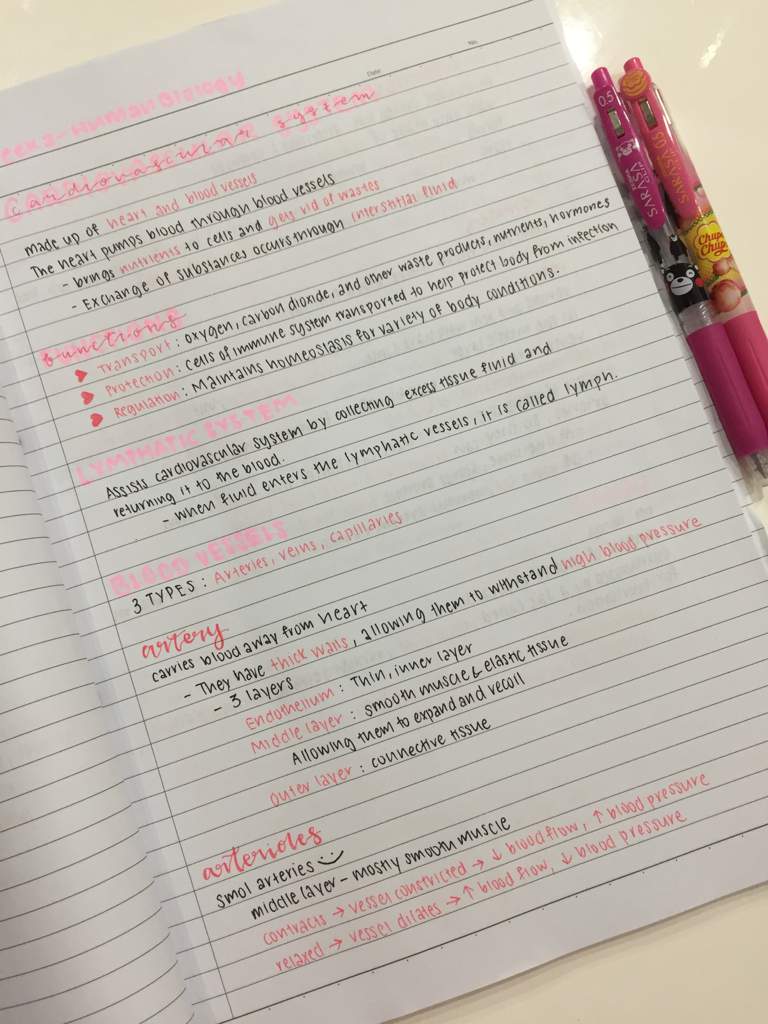 Date
No.
- Human Biology
Cardiovascular System
made up of heart and blood vessels
The heart pumps blood through blood vessels
- brings nutrients to cells and gets rid of wastes
- Exchange of substances occurs through interstitial fluid
Functions
Transport: oxygen, carbon dioxide, and other waste products, nutrients, hormones
Protection: Cells of immune system transported to help protect body from infection
Regulation: Maintains homeostasis for variety of body conditions.
LYMPHATIC SYSTEM
Assists cardiovascular system by collecting excess tissue fluid and
returning it to the blood.
- when fluid enters the lymphatic vessels, it is called lymph.
BLOOD VESSELS
3 TYPES: Arteries, veins, capillaries
artery
carries blood away from heart
- They have thick walls, allowing them to withstand high blood pressure
- 3 layers
Endothelium: Thin, inner layer
Middle layer: smooth muscle & elastic tissue
Allowing them to expand and recoil
Outer layer: connective tissue
arterioles
smol arteries
middle layer - mostly smooth muscle
contracts → vessel constricted → ↓ blood flow, ↑ blood pressure
relaxed → vessel dilates → ↑ blood flow, ↓ blood pressure
0.5
SARASA
SARASA 0.5
Chupa
Chups